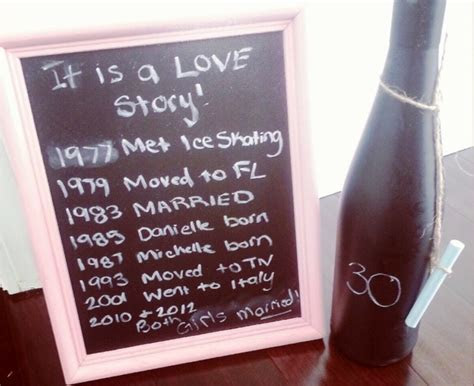 It is a LOVE
Story!
1977 Met Ice Skating
1979 Moved to FL
1983 MARRIED
1985 Danielle born
1987 Michelle born
1993 Moved to TN
2001 Went to Italy
2010 + 2012
Both Girls Married!
30